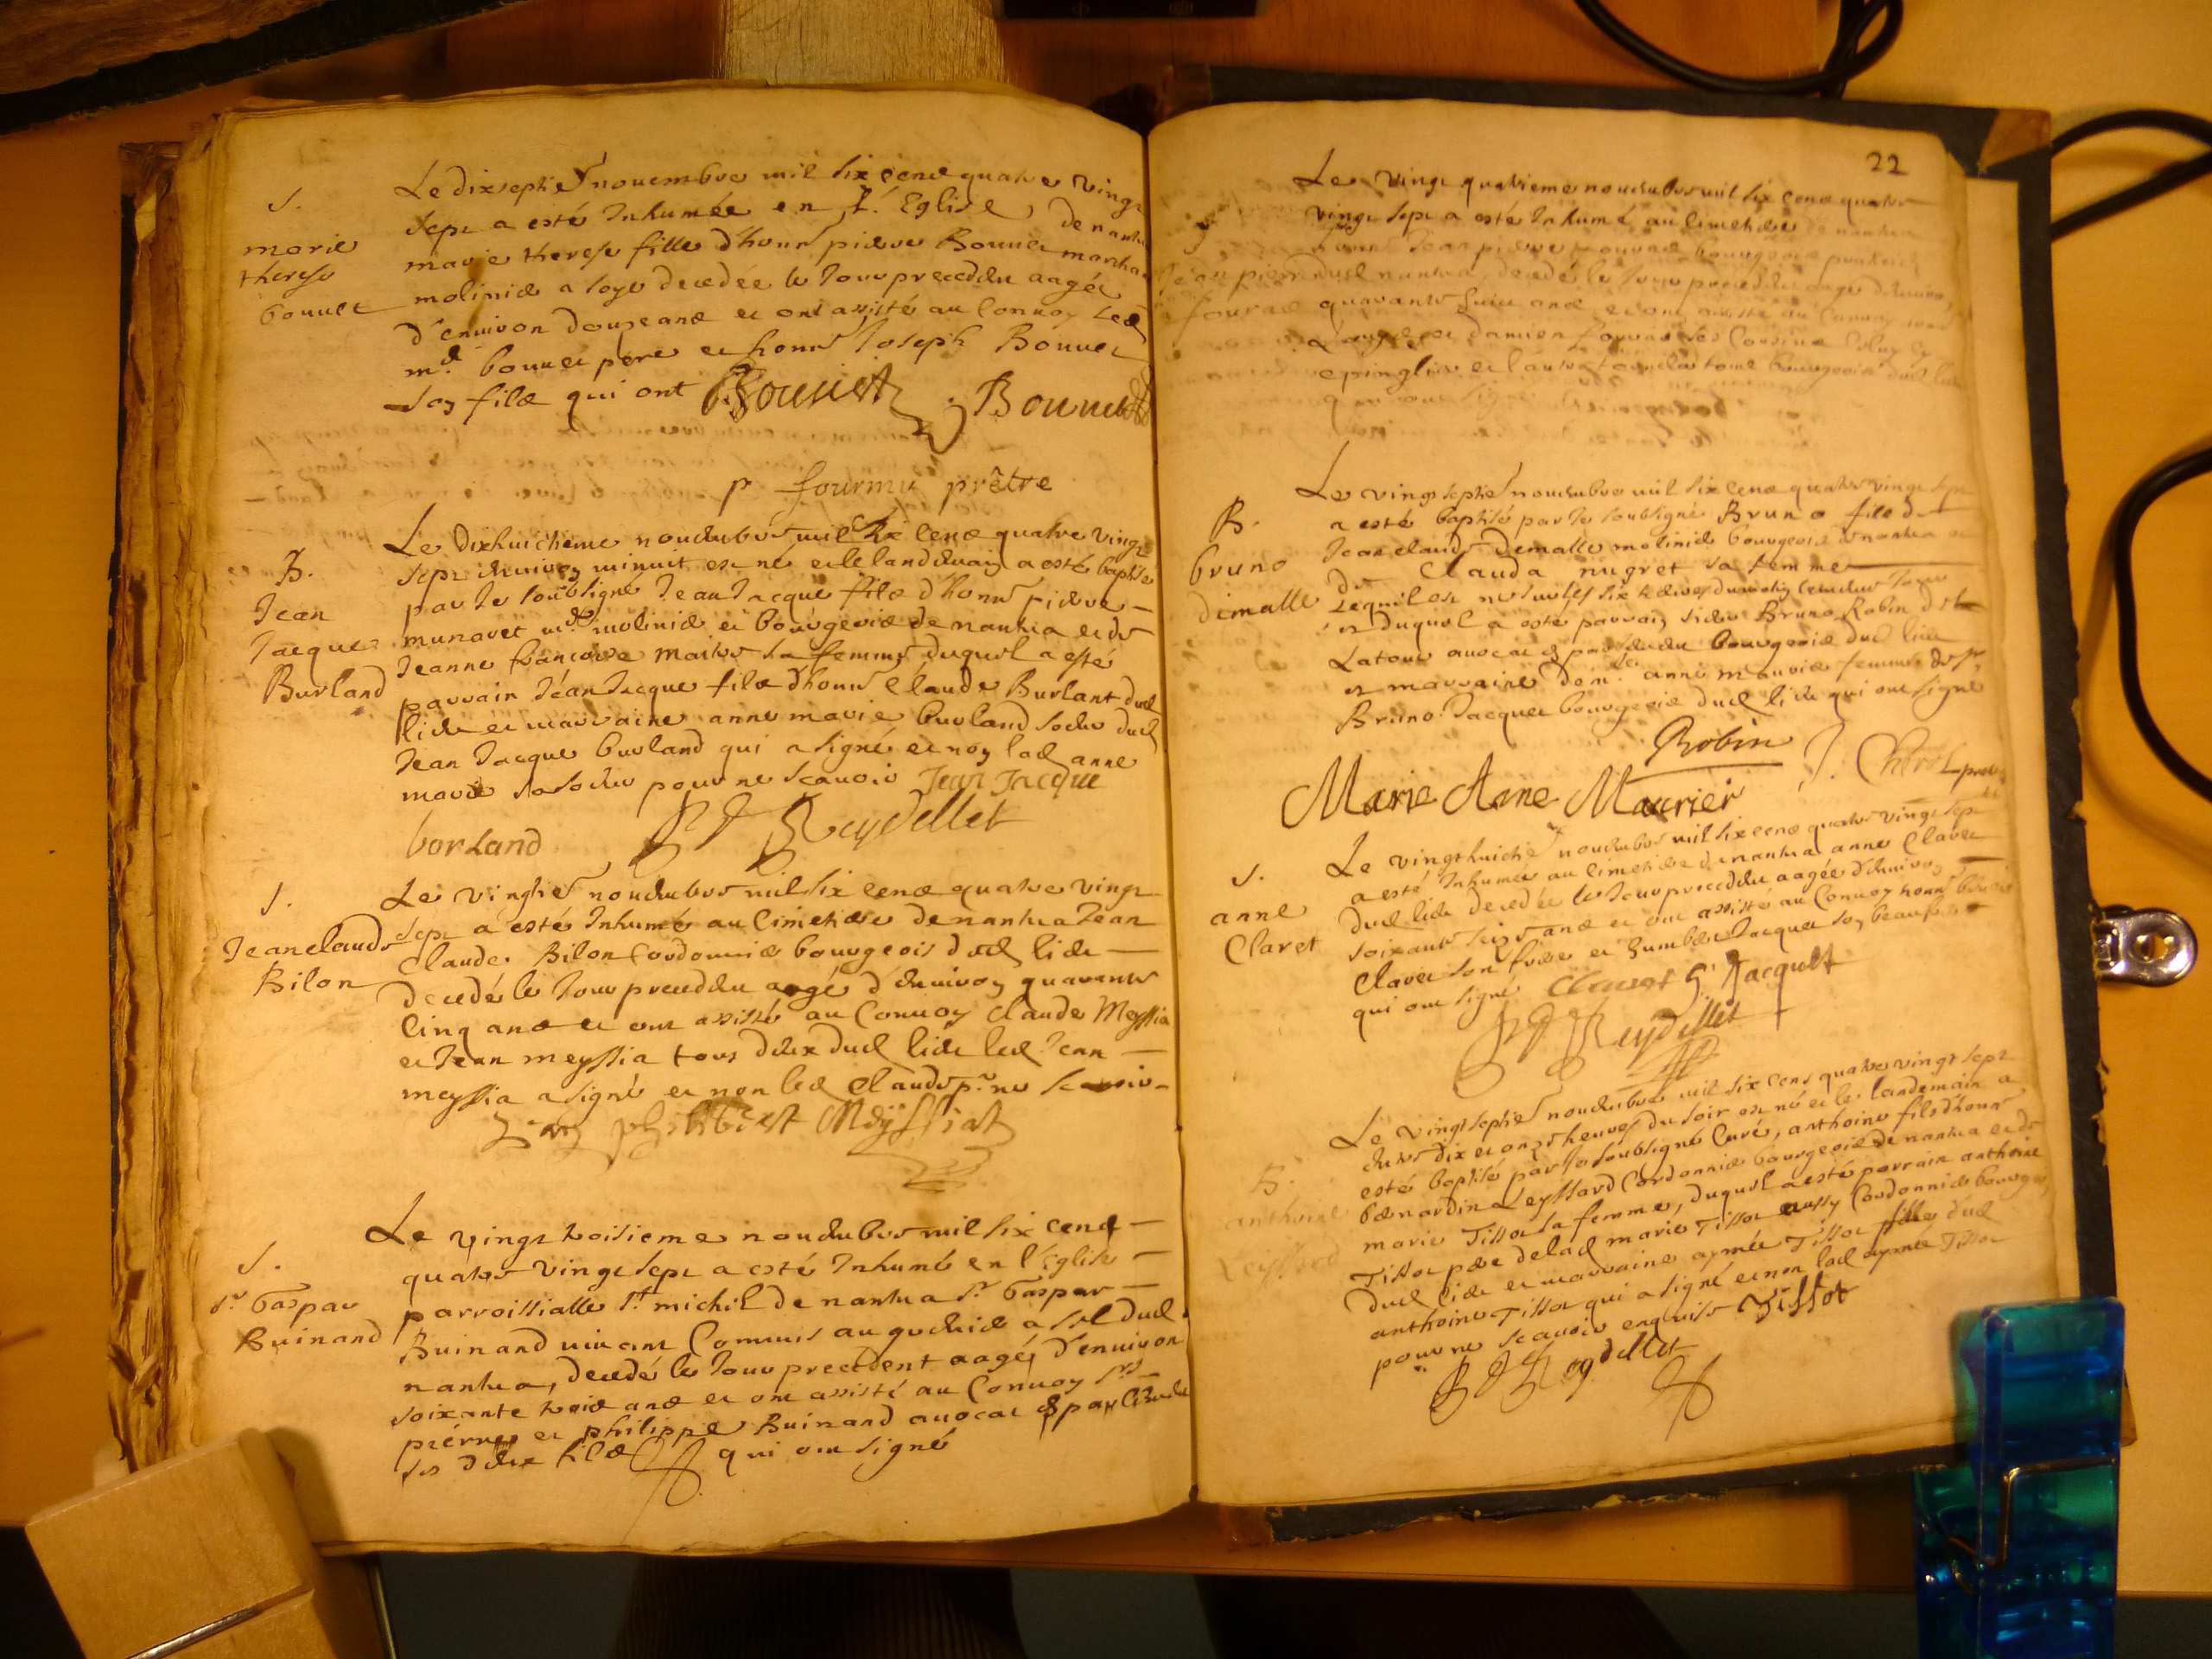 S.
marie
therese
bonnet
Le dixseptie novembre mil six cens quatre vingt
sept a esté Inhumée en l'Eglise de nantua
marie therese fille d'honn pierre Bonnet marcha
molinié a soye decedée le Jour precedan aagée
d'environ douze ans et ont assisté au Convoy led
md. bonnet pere et honn Joseph Bonnet
son fils qui ont Bonnet Bonnet
p fourmy prêtre
B.
Jean
Jacque
Burland
Le dixhuictieme novembre mil six cens quatre vingt
sept environ minuit est né et le landemain a esté baptisé
par Je soubsigné Jean Jacque fils d'honn pierre
munaret md molinié et bourgeois de nantua et de
Jeanne francoise maitre sa femme duquel a esté
parrain Jean Jacque fils d'honn Claude Burlant dud
lieu et marraine anne marie burland soeur dud
Jean Jacque burland qui a signé et non lad anne
marie sa soeur pour ne scavoir Jean Jacque
borland Reydellet
S.
Jeanclaude
Bilon
Le vingtie novembre mil six cens quatre vingt
sept a esté Inhumé au Cimetiere de nantua Jean
Claude Bilon Cordonnié bourgeois dud lieu
decedé le Jour precedan aagé d'environ quarante
cinq ans et ont assisté au Convoy Claude Meyssia
et Jean meyssia tous deux dud lieu led Jean
meyssia a signé et non led Claude pr ne scavoir
philibert Meyssiat
S.
sr. Gaspar
Buinand
Le vingt troisieme novembre mil six cens
quatre vingt sept a esté Inhumé en l'Eglise
parroissialle St michel de nantua sr. Gaspar
Buinand vivant Commis au grenié a sel dud
nantua, decedé le Jour precedent aagé d'environ
soixante trois ans et ont assisté au Convoy srs
pierre et philippe Buinand avocat &
ses deux fils qui ont signé
22
Le vingt quatrieme novembre mil six cens quatre
vingt sept a esté Inhumé au Cimetiere de nantua
Jean pierre bourgeois
Jean pierre dud nantua, decedé le Jour precedan aagé d'environ
quarante huict ans et ont assisté au Convoy
et damien ses Cousins
epinglier et l'autre bourgeois dud lieu
qui ont signé
B.
bruno
dimalle
Le vingt septie novembre mil six cens quatre vingt sept
a esté baptisé par Je soubsigné Bruno fils de
Jean claude Demalle molinié bourgeois de nantua et
de Clauda nugret sa femme
Lequel est né sur les six heures du matin
et duquel a esté parrain sieur Bruno Robin de
Latour avocat & bourgeois dud lieu
et marraine demlle. anne mauriе femme de sr
Bruno Jacquet bourgeois dud lieu qui ont signé
Robin
Marie Anne Maurier
S.
anne
Claret
Le vingthuictie novembre mil six cens quatre vingt sept
a esté Inhumée au cimetiere de nantua anne Claret
dud lieu decedée le Jour precedan aagée d'environ
soixante seize ans et ont assisté au Convoy honn
Claret son frere et humbert Jacquet son beaufrere
qui ont signé Claret h Jacquet
Reydellet
B.
anthoine
Leyssard
Le vingt septie novembre mil six cens quatre vingt sept
entre dix et onze heures du soir est né et le landemain a
esté baptisé par Je soubsigné Curé, anthoine fils d'honn
bernardin Leyssard Cordonnié bourgeois de nantua et de
marie Tissot sa femme, duquel a esté parrain anthoine
Tissot pere de lad marie Tissot aussy Cordonnié bourgeois
dud lieu et marraine aymée Tissot fille dud
anthoine Tissot qui a signé et non lad aymée Tissot
pour ne scavoir enquise Tissot
Reydellet